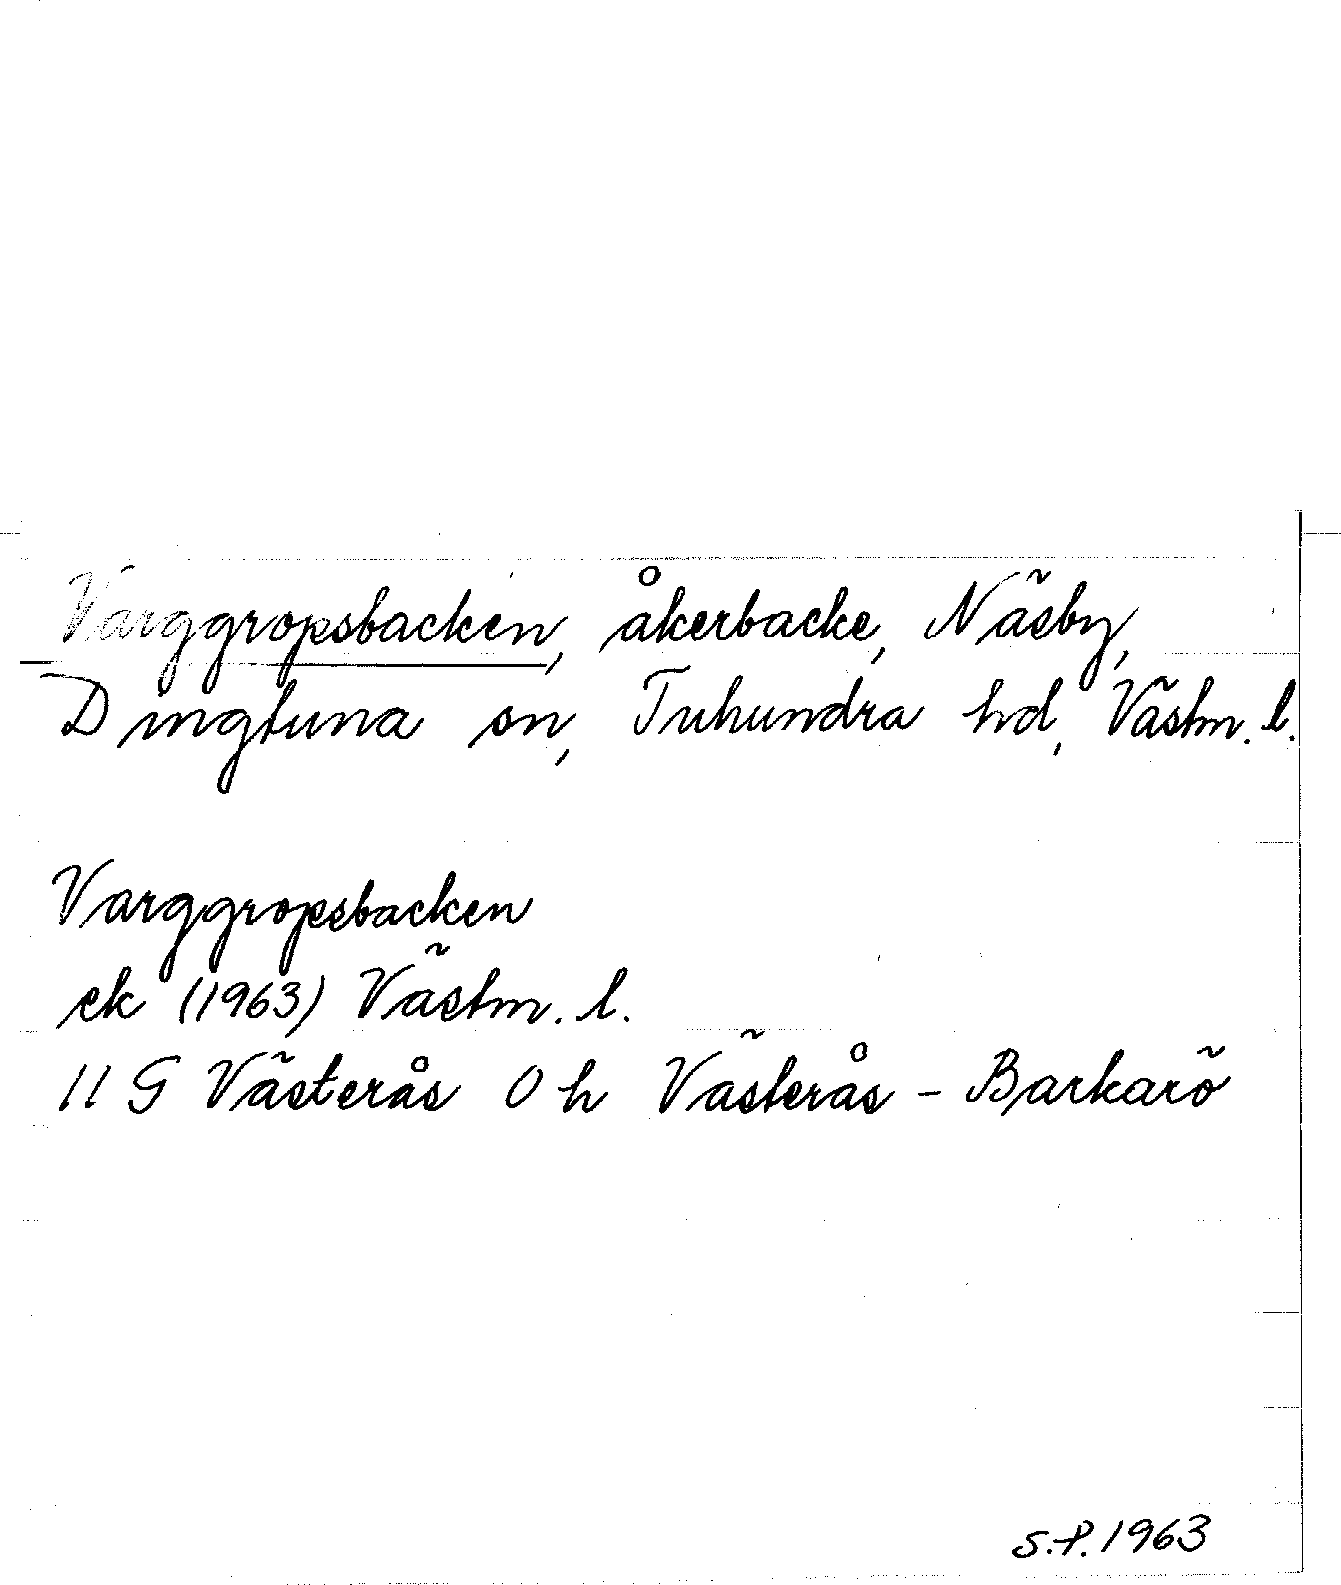 Varggropsbacken, åkerbacke, Näsby,
Dingtuna sn, Tuhundra hd, Västm. l.
Varggropsbacken
ek (1963) Västm. l.
11 G Västerås 0 h Västerås - Barkarö
S.P. 1963